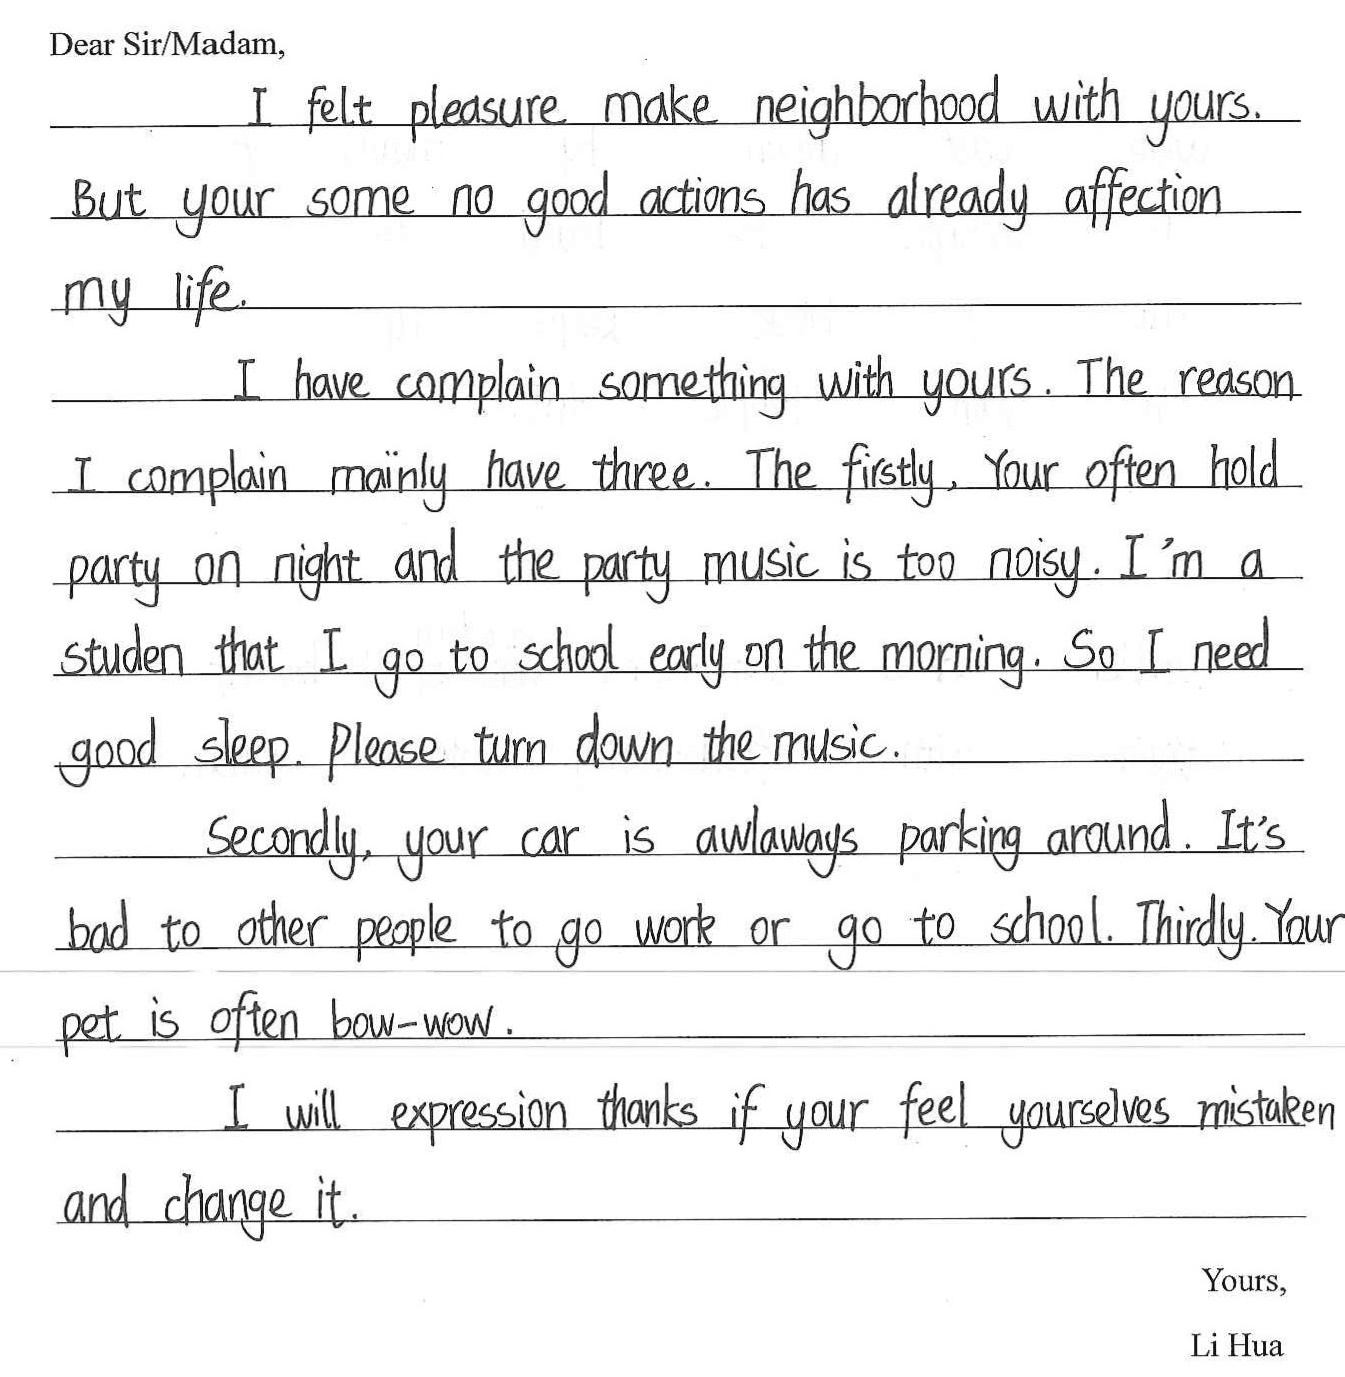 Dear Sir/Madam,
I felt pleasure make neighborhood with yours.
But your some no good actions has already affection
my life.
I have complain something with yours. The reason
I complain mainly have three. The firstly, Your often hold
party on night and the party music is too noisy. I'm a
studen that I go to school early on the morning. So I need
good sleep. Please turn down the music.
Secondly, your car is awlaways parking around. It's
bad to other people to go work or go to school. Thirdly. Your
pet is often bow-wow.
I will expression thanks if your feel yourselves mistaken
and change it.
Yours,
Li Hua